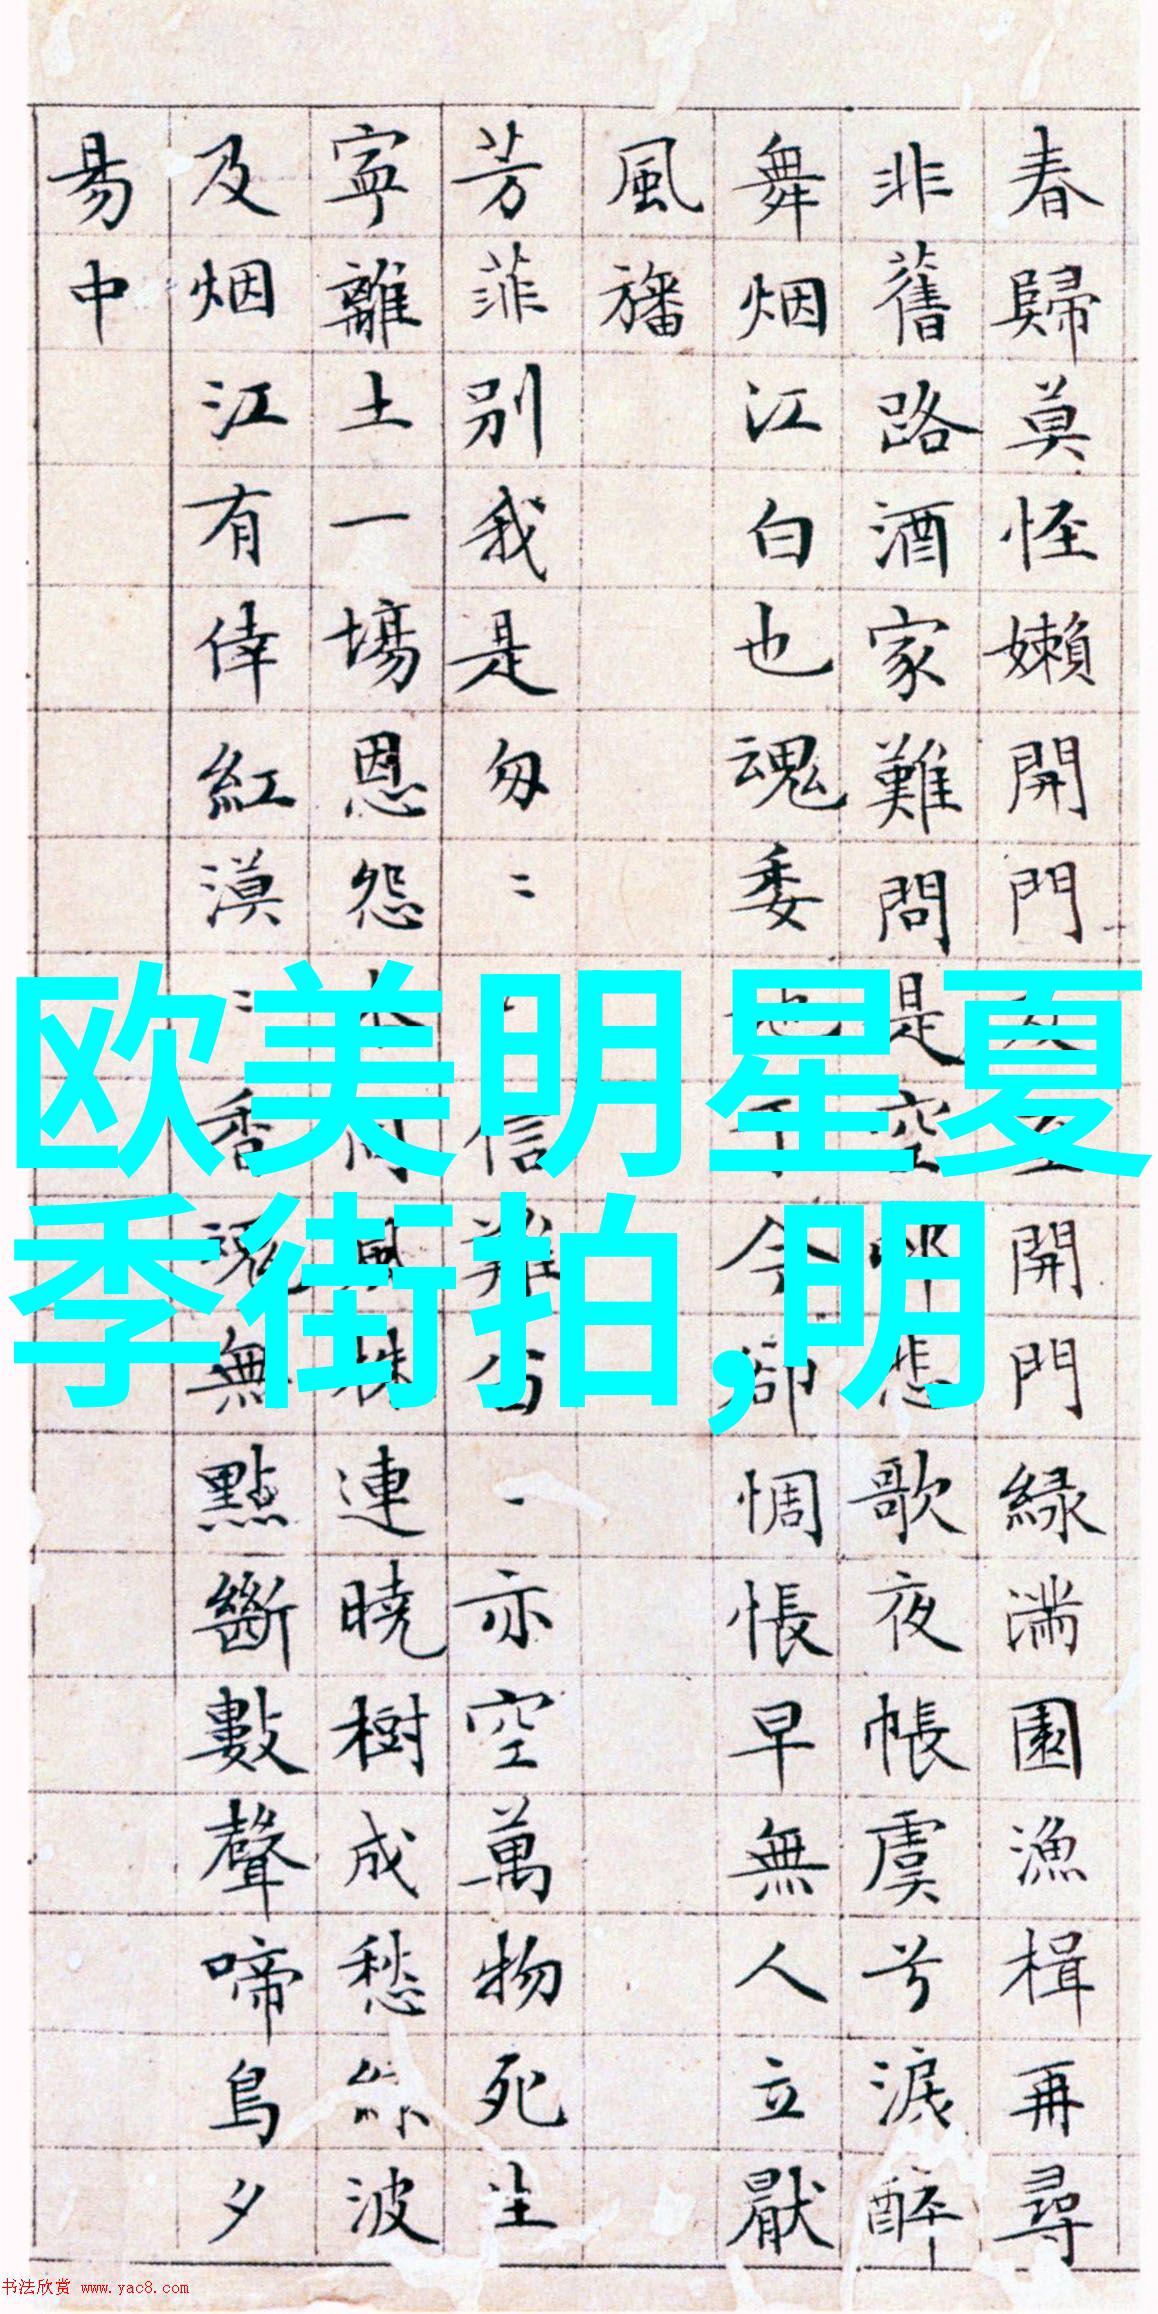 春歸莫怪嬾開門
開門緑滿園漁楫再尋
非舊路酒家難問是空
悲歌夜帳虞兮淚醉
舞烟江白也魂委也
今卻惆悵早無人立厭
風旛
芳菲別我是匆〻
信難公一亦空萬物死生
寧離土一場恩怨
風株連曉樹成愁絲波
及烟江有倖紅漠〻香魂無點斷數聲啼鳥夕
易中
欧美明星夏
季街拍,明
书法欣赏 www.yac8.com